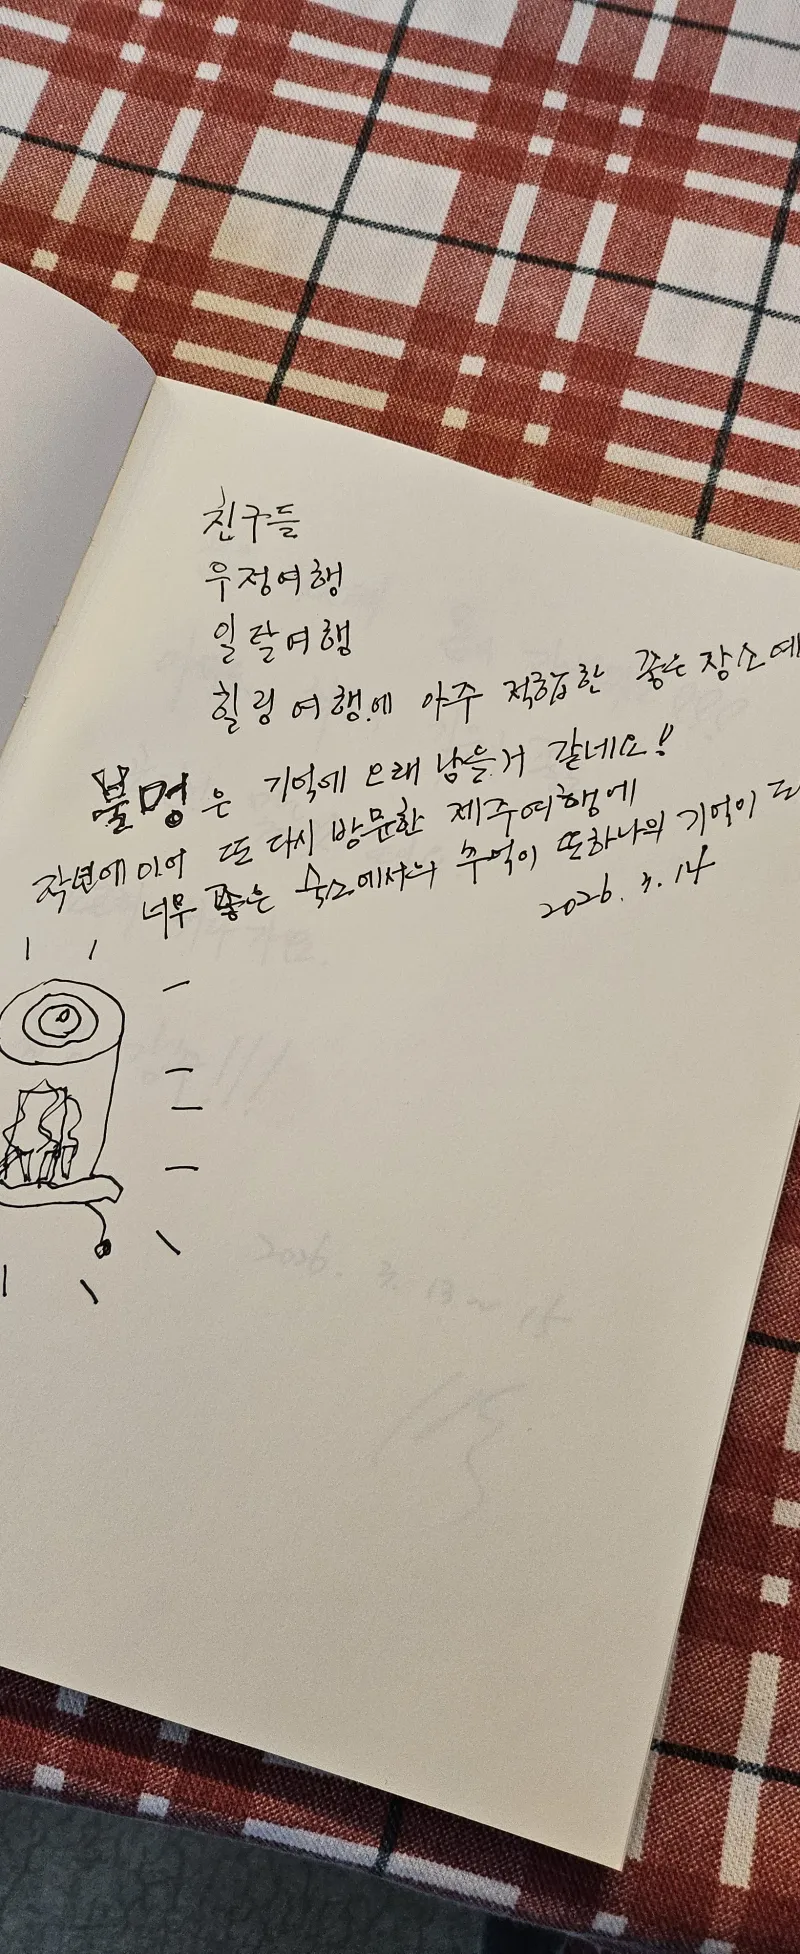 친구들
우정여행
일탈여행
힐링여행에 아주 적합한 좋은 장소예
불멍은 기억에 오래 남을거 같네요!
작년에 이어 또 다시 방문한 제주여행에
너무 좋은 숙소에서의 추억이 또하나의 기억이 되
2026. 3. 14
2026. 3. 13 ~ 15